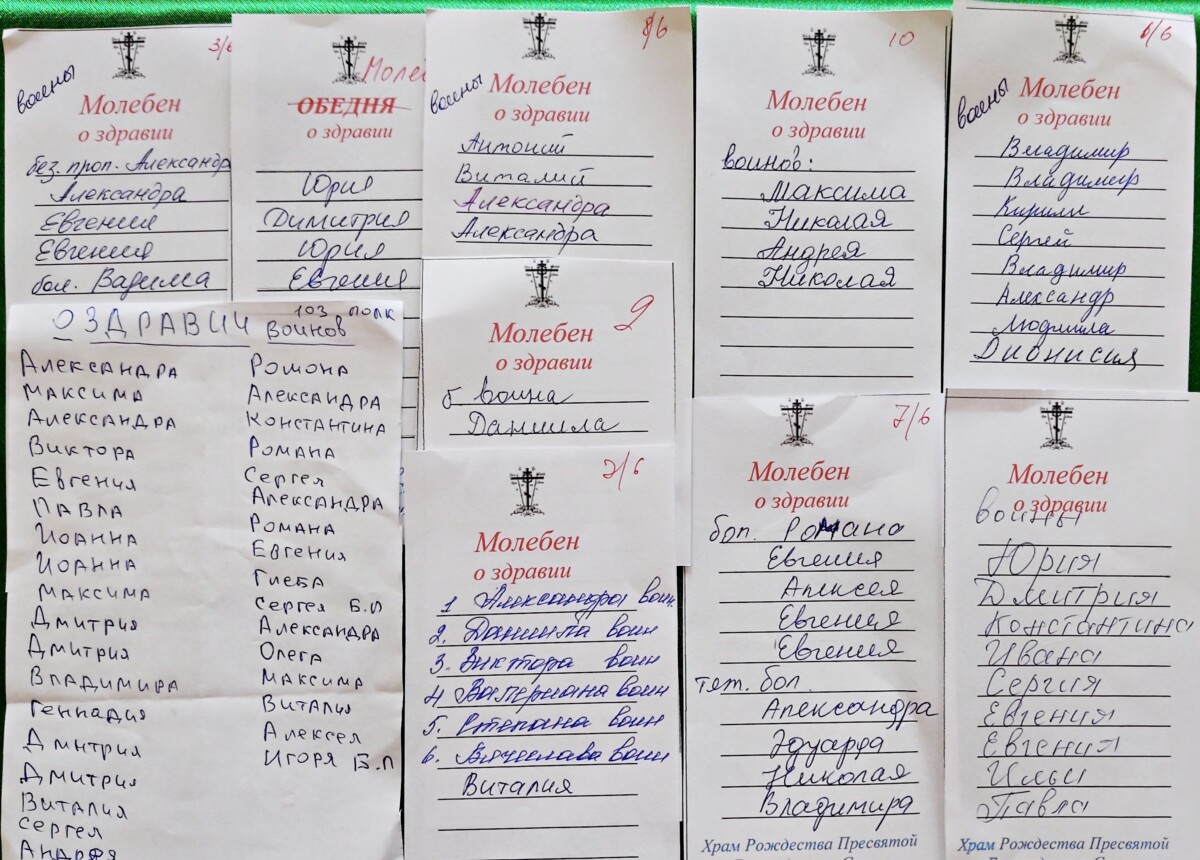 3/6
воины
Молебен
о здравии
без. проп. Александр
Александра
Евгения
Евгения
бол. Вадима
Моле
ОБЕДНЯ
о здравии
Юрия
Димитрия
Юрия
Евгения
8/6
воины
Молебен
о здравии
Антоний
Виталий
Александра
Александра
10
Молебен
о здравии
воинов:
Максима
Николая
Андрея
Николая
6/6
воины
Молебен
о здравии
Владимир
Владимир
Кирилл
Сергей
Владимир
Александр
Людмила
Дионисия
103 полк
О ЗДРАВИИ Воинов
Александра
Максима
Александра
Виктора
Евгения
Павла
Иоанна
Иоанна
Максима
Дмитрия
Дмитрия
Владимира
Геннадия
Дмитрия
Дмитрия
Виталия
Сергея
Андрея
Ромона
Александра
Константина
Романа
Сергея
Александра
Романа
Евгения
Глеба
Сергея Б.П
Александра
Олега
Максима
Виталия
Алексея
Игоря Б.П
Молебен
о здравии
б воина
Даниила
Молебен
о здравии
1 Александра воин.
2. Данипа воин
3. Виктора воин
4 Валериана воин
5. Степана воин
6. Вячеслава воин
Виталия
7/6
Молебен
о здравии
бол. Романа
Евгения
Алексея
Евгения
Евгения
тяж. бол
Александра
Эдуарда
Николая
Владимира
Храм Рождества Пресвятой
Молебен
о здравии
воины
Юрия
Дмитрия
Константина
Ивана
Сергия
Евгения
Евгения
Ильи
Павла
Храм Рождества Пресвятой